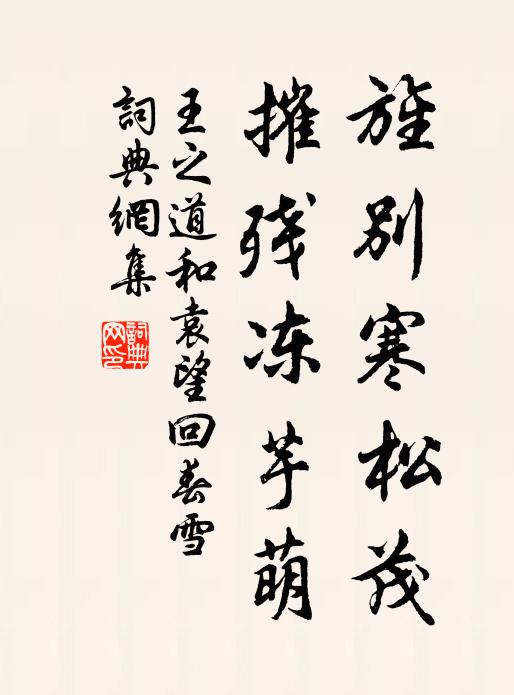 旌别寒松茂
摧残冻芋萌
王之道和袁望回春雪
詞典網集
詞典網印